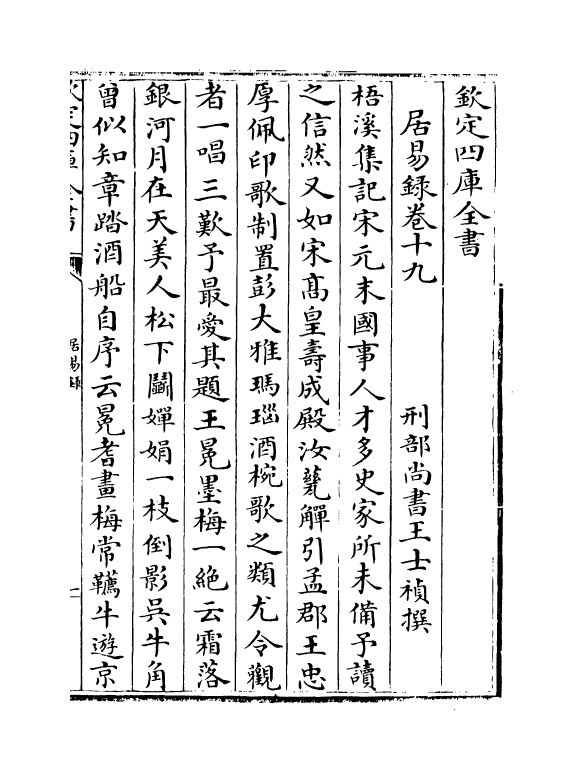 欽定四庫全書
居易録卷十九
刑部尚書王士禎撰
梧溪集記宋元末國事人才多史家所未備予讀
之信然又如宋髙皇壽成殿汝甆觶引孟郡王忠
厚佩印歌制置彭大雅瑪瑙酒椀歌之類尤令觀
者一唱三歎予最愛其題王冕墨梅一絶云霜落
銀河月在天美人松下鬬嬋娟一枝倒影吳牛角
曾似知章踏酒船自序云冕耆畫梅常韉牛遊京
欽定四庫全書
居易録
一